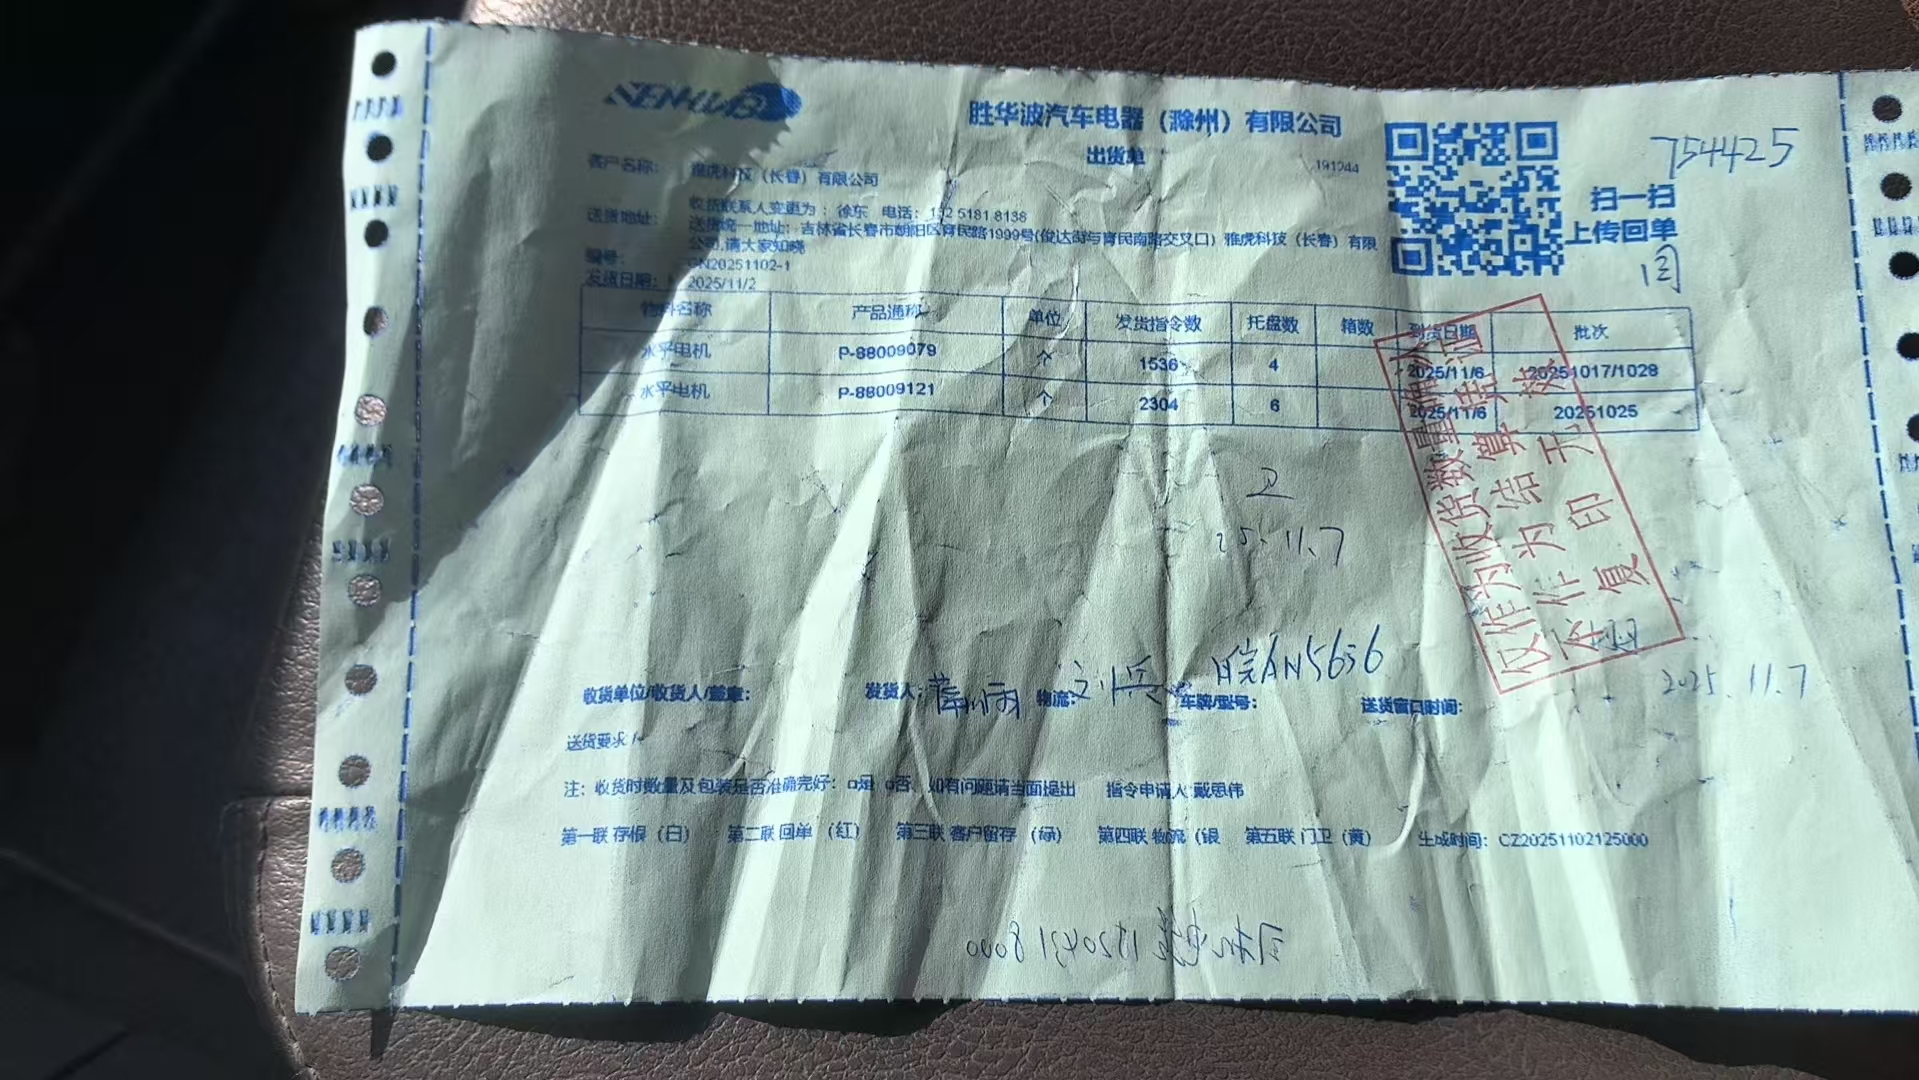 胜华波汽车电器（滁州）有限公司
出货单
191244
754425
扫一扫
上传回单
客户名称： 雅虎科技（长春）有限公司
送货地址： 收货联系人变更为：徐东 电话：132 5181 8138
送货统一地址：吉林省长春市朝阳区育民路1999号(俊达街与育民南路交叉口）雅虎科技（长春）有限
公司,请大家知晓
编号： GN20251102-1
发货日期： 2025/11/2
物料名称 产品通称 单位 发货指令数 托盘数 箱数 到货日期 批次
水平电机 P-88009079 个 1536 4 2025/11/6 20251017/1028
水平电机 P-88009121 个 2304 6 2025/11/6 20251025
仅作为收货数量确认
不作为结算凭证
复印无效
25.11.7
皖AN5656
2025.11.7
收货单位/收货人/盖章： 发货人： 物流： 车牌/型号： 送货窗口时间：
送货要求
注：收货时数量及包装是否准确完好：□是 □否、如有问题请当面提出 指令申请人:戴思伟
第一联 存根（白） 第二联 回单（红） 第三联 客户留存（绿） 第四联 物流（银 第五联 门卫（黄） 生成时间：CZ20251102125000